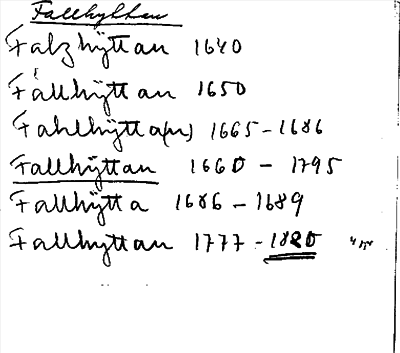 Fallhyttan
Falzhÿttan 1640
Fällhÿttan 1650
Fahlhÿtta(n) 1665-1686
Fallhÿttan 1660 - 1795
Fallhÿtta 1686 - 1689
Fallhyttan 1777-1820